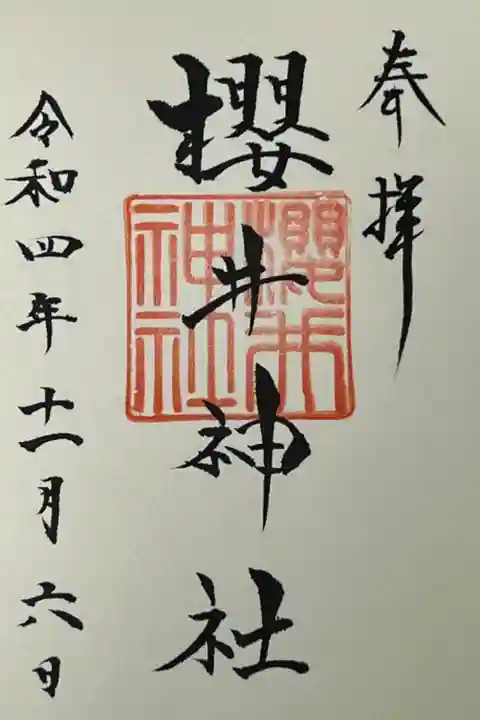 奉拝
櫻井神社
櫻井神社
令和四年十一月六日